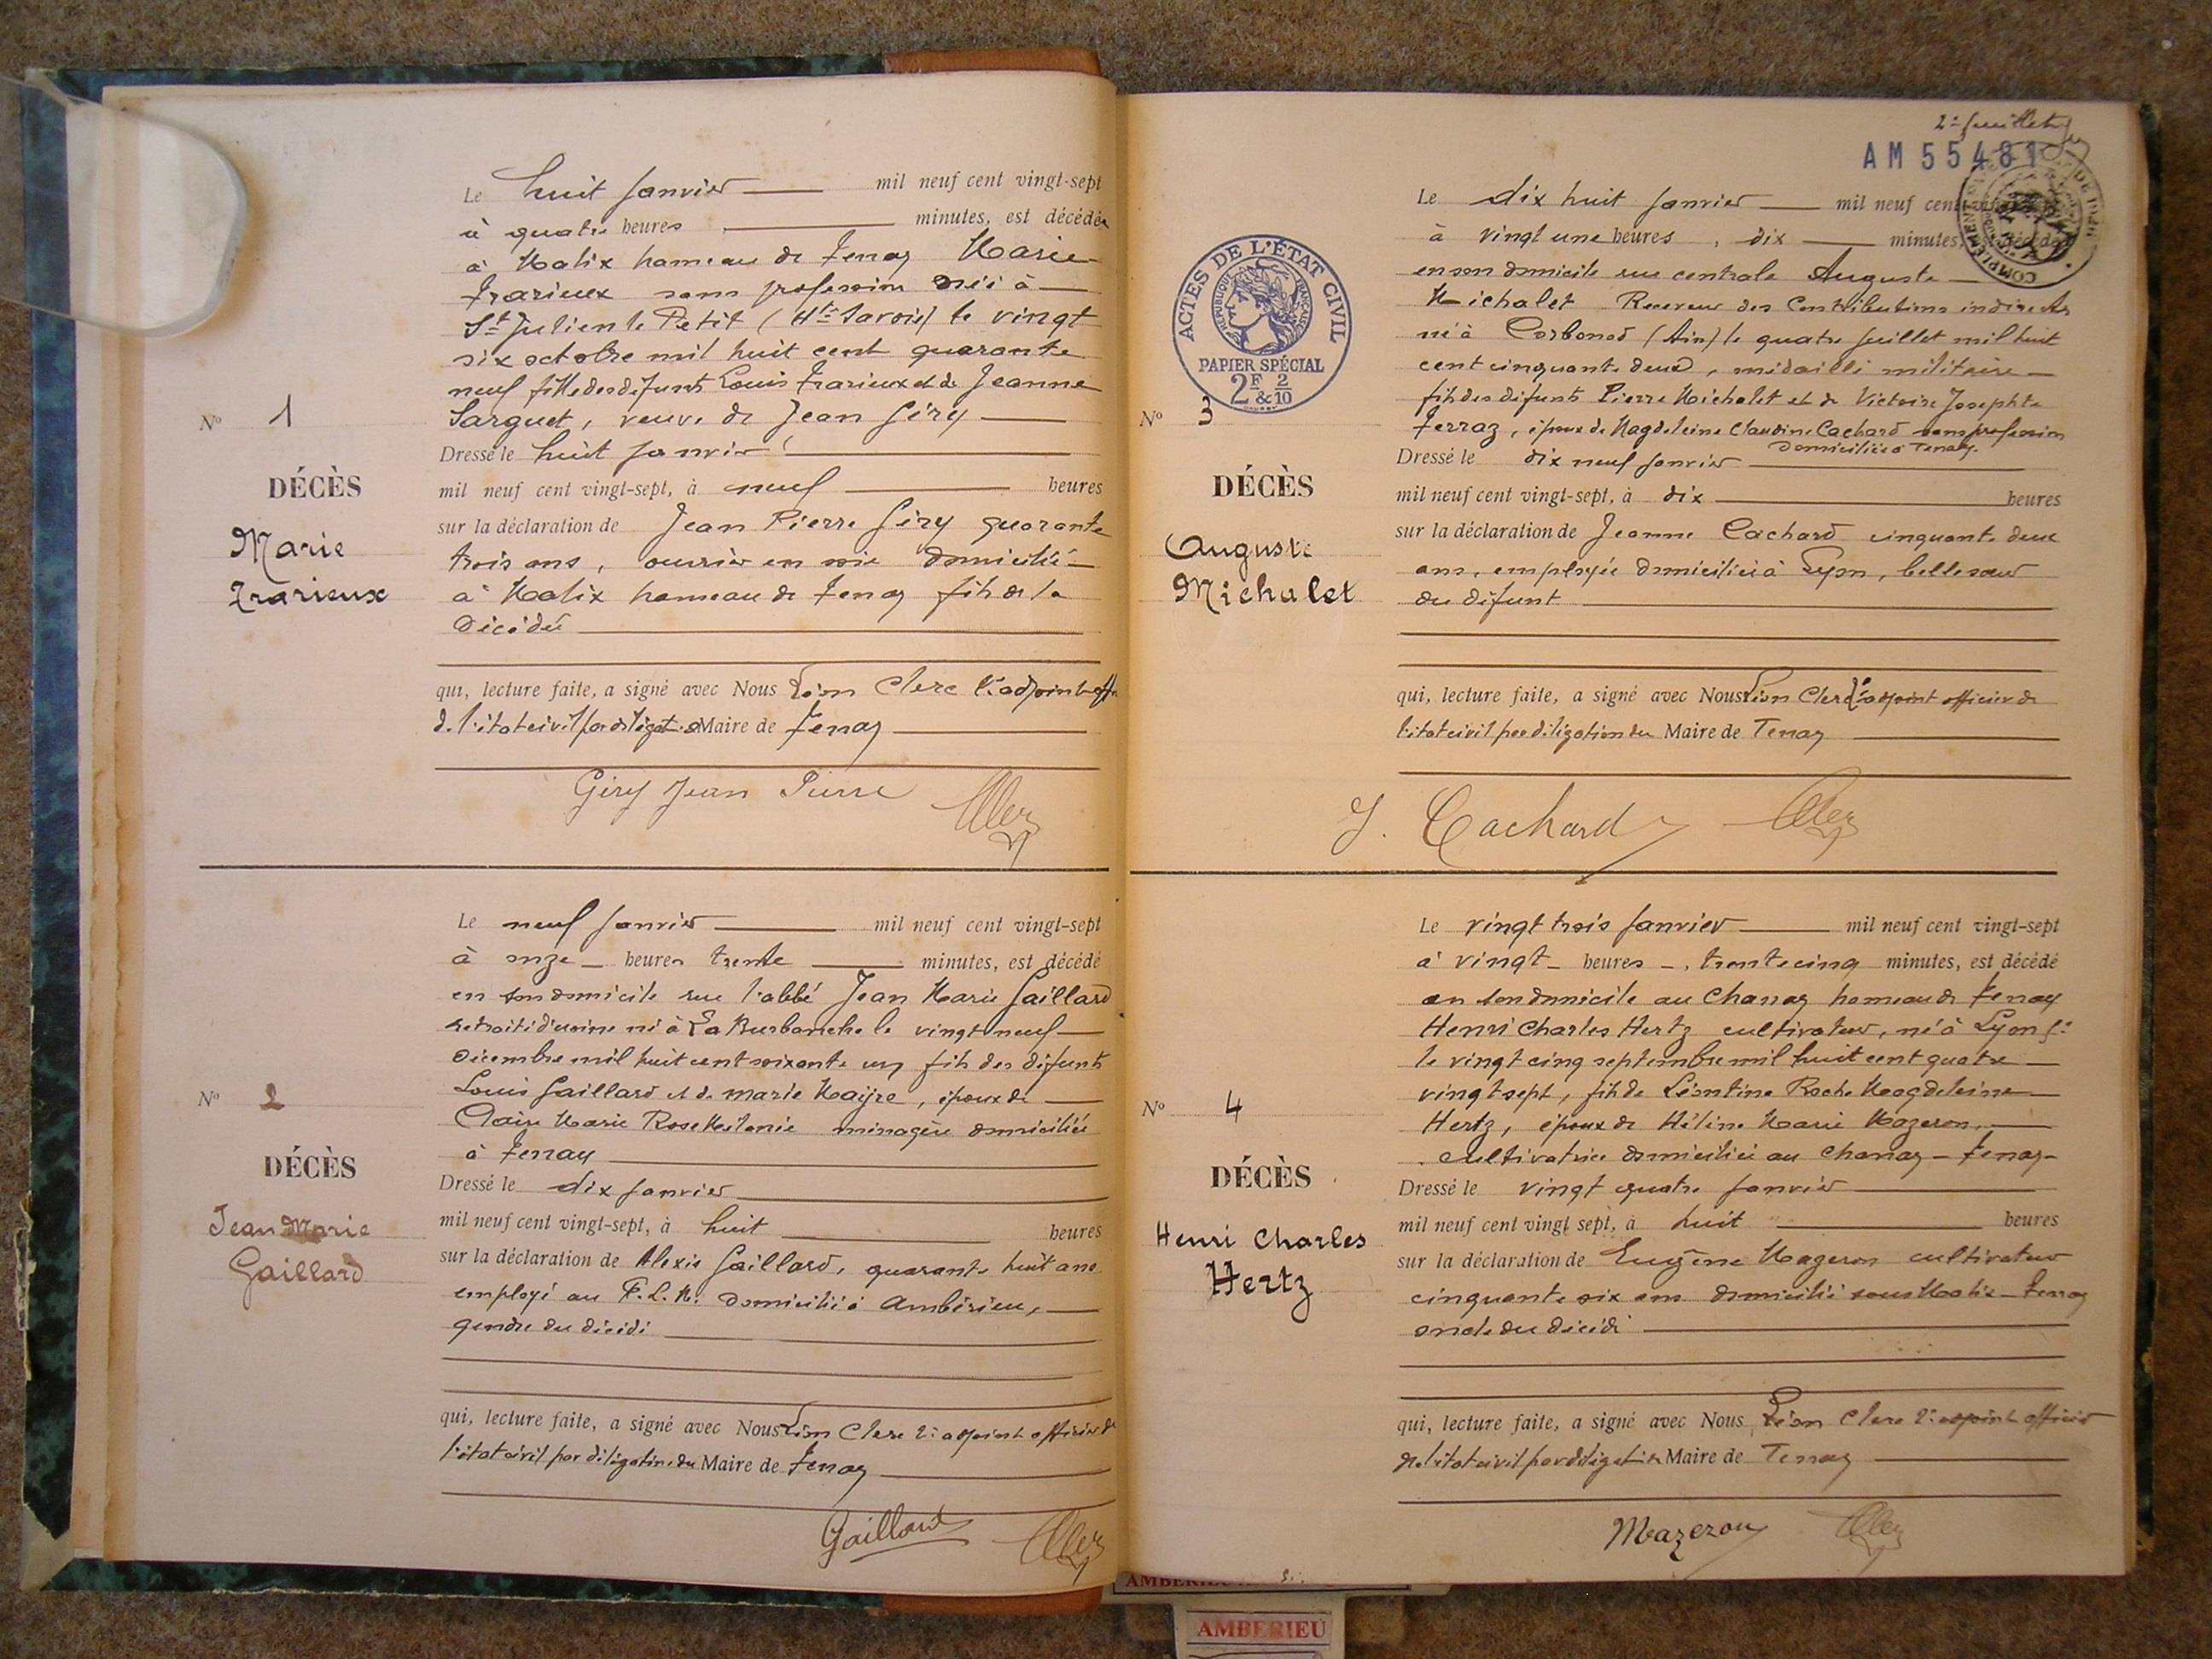 Le huit Janvier mil neuf cent vingt-sept
à quatre heures minutes, est décédée
à Malix hameau de Tenay Marie
Trarieux sans profession née à
St Julien le Petit (Hte Savoie) le vingt
six octobre mil huit cent quarante
neuf fille des défunts Louis Trarieux et de Jeanne
Sarguet, veuve de Jean Géry
Dressé le huit Janvier
mil neuf cent vingt-sept, à neuf heures
sur la déclaration de Jean Pierre Géry quarante
trois ans, ouvrier en soie domicilié
à Malix hameau de Tenay fils de la
décédée
qui, lecture faite, a signé avec Nous Léon Clerc adjoint
de l'état civil par délégat Maire de Tenay
Géry Jean Pierre Clerc
No 1
DÉCÈS
Marie
Trarieux
Le neuf Janvier mil neuf cent vingt-sept
à onze heures trente minutes, est décédé
en son domicile rue l'abbé Jean Marie Gaillard
retraité d'usine né à La Burbanche le vingt neuf
décembre mil huit cent soixante un fils des défunts
Louis Gaillard et de marie Mayre, époux de
Claire Marie Rose ménagère domiciliée
à Tenay
Dressé le dix Janvier
mil neuf cent vingt-sept, à huit heures
sur la déclaration de Alexis Gaillard, quarante huit ans
employé au P.L.M. domicilié à Ambérieu,
gendre du décédé
qui, lecture faite, a signé avec Nous Léon Clerc 2e adjoint officier de
l'état civil par délégation du Maire de Tenay
Gaillard Clerc
No 2
DÉCÈS
Jean Marie
Gaillard
2e feuillet
AM 55481
Le dix huit Janvier mil neuf cent
à vingt une heures, dix minutes, est décédé
en son domicile rue centrale Auguste
Michalet Receveur des Contributions indirectes
né à Corbonod (Ain) le quatre Juillet mil huit
cent cinquante deux, médaillé militaire
fils des défunts Pierre Michalet et de Victoire Josephte
Ferraz, époux de Magdeleine Claudine Cachard sans profession
domiciliée à Tenay.
Dressé le dix neuf Janvier
mil neuf cent vingt-sept, à dix heures
sur la déclaration de Jeanne Cachard cinquante deux
ans, employée domiciliée à Lyon, belle sœur
du défunt
qui, lecture faite, a signé avec Nous Léon Clerc adjoint officier de
l'état civil par délégation du Maire de Tenay
J. Cachard Clerc
ACTES DE L'ÉTAT CIVIL
RÉPUBLIQUE FRANÇAISE
PAPIER SPÉCIAL
2F & 2/10
No 3
DÉCÈS
Auguste
Michalet
Le vingt trois Janvier mil neuf cent vingt-sept
à vingt heures, trente cinq minutes, est décédé
en son domicile au Chanay hameau de Tenay
Henri Charles Hertz cultivateur, né à Lyon
le vingt cinq septembre mil huit cent quatre
vingt sept, fils de Léontine Rache Magdeleine
Hertz, époux de Hélène Marie Mazeron,
cultivatrice domiciliée au Chanay - Tenay -
Dressé le vingt quatre Janvier
mil neuf cent vingt sept, à huit heures
sur la déclaration de Eugène Mazeron cultivateur
cinquante six ans domicilié sous Malix - Tenay
oncle du décédé
qui, lecture faite, a signé avec Nous Léon Clerc 2e adjoint officier
de l'état civil par délégation Maire de Tenay
Mazeron Clerc
No 4
DÉCÈS
Henri Charles
Hertz
AMBERIEU